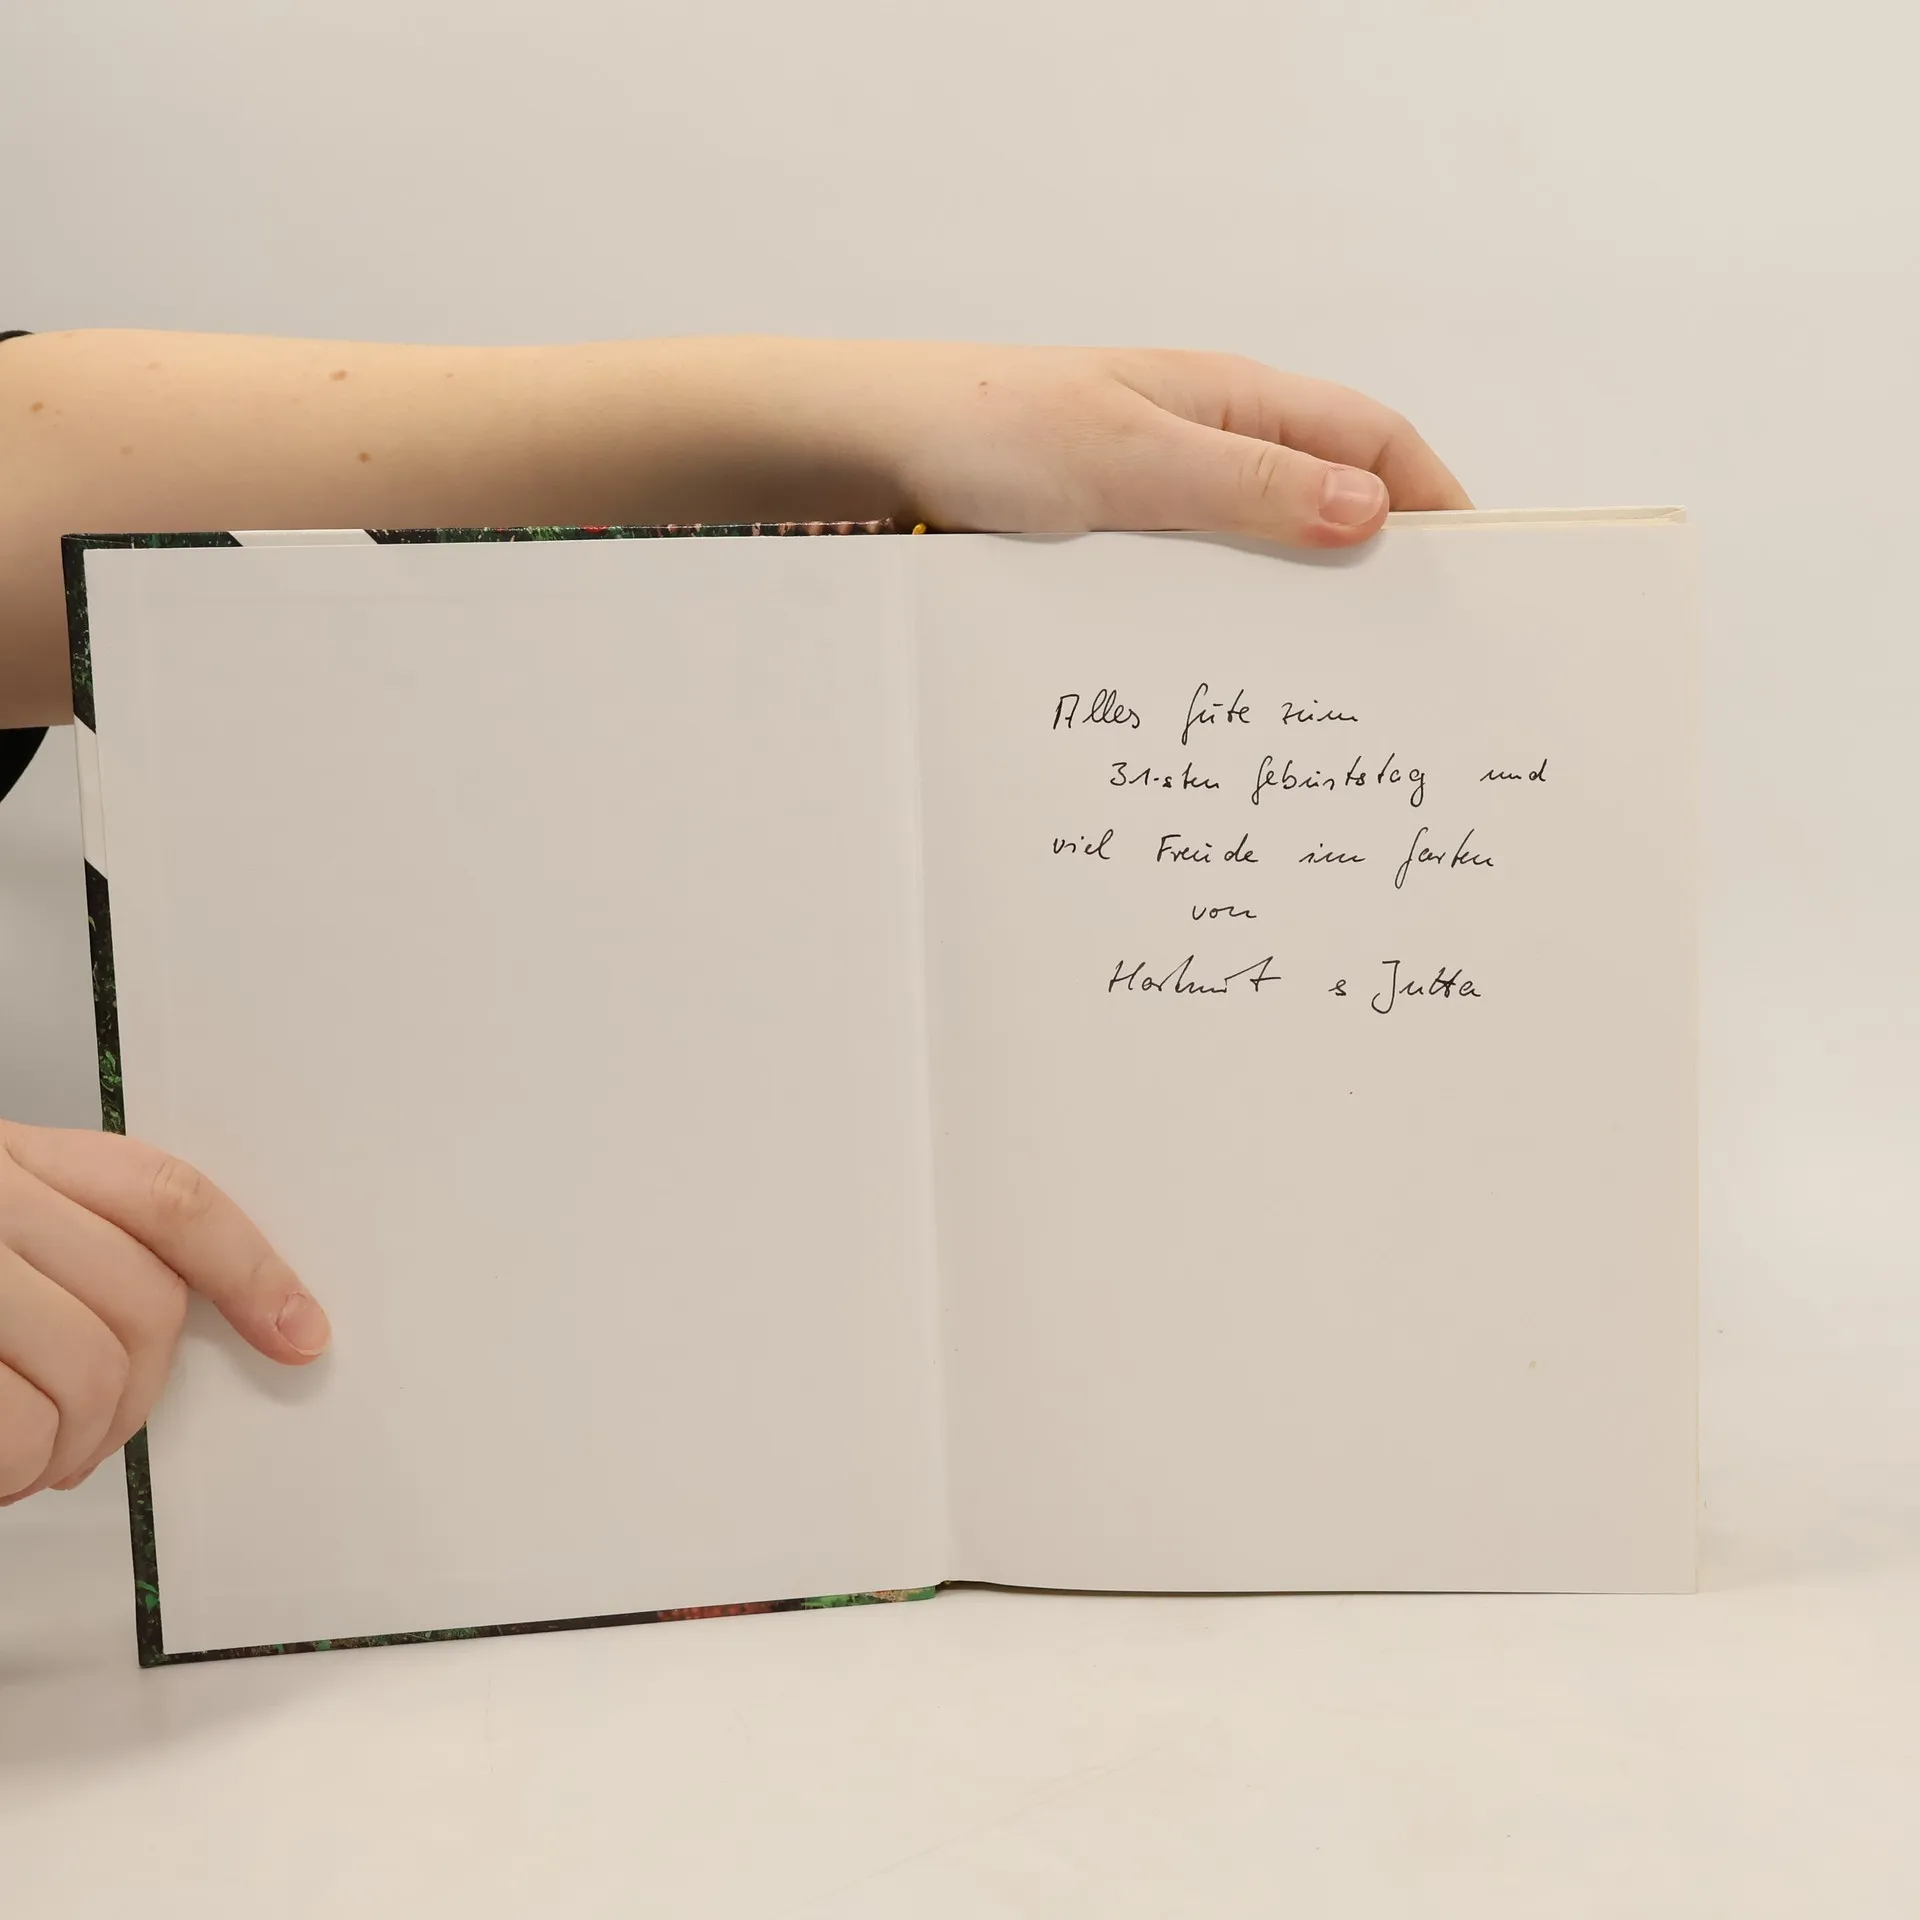 Alles Gute zum
31-sten Geburtstag und
viel Freude im Garten
von
Hartmut & Jutta